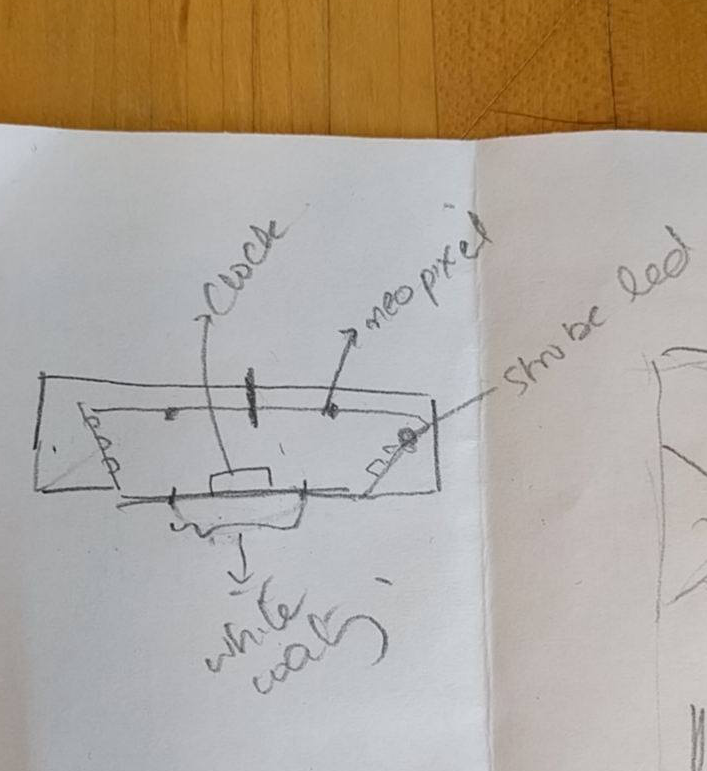 Clock
neopixel
strobe led
white